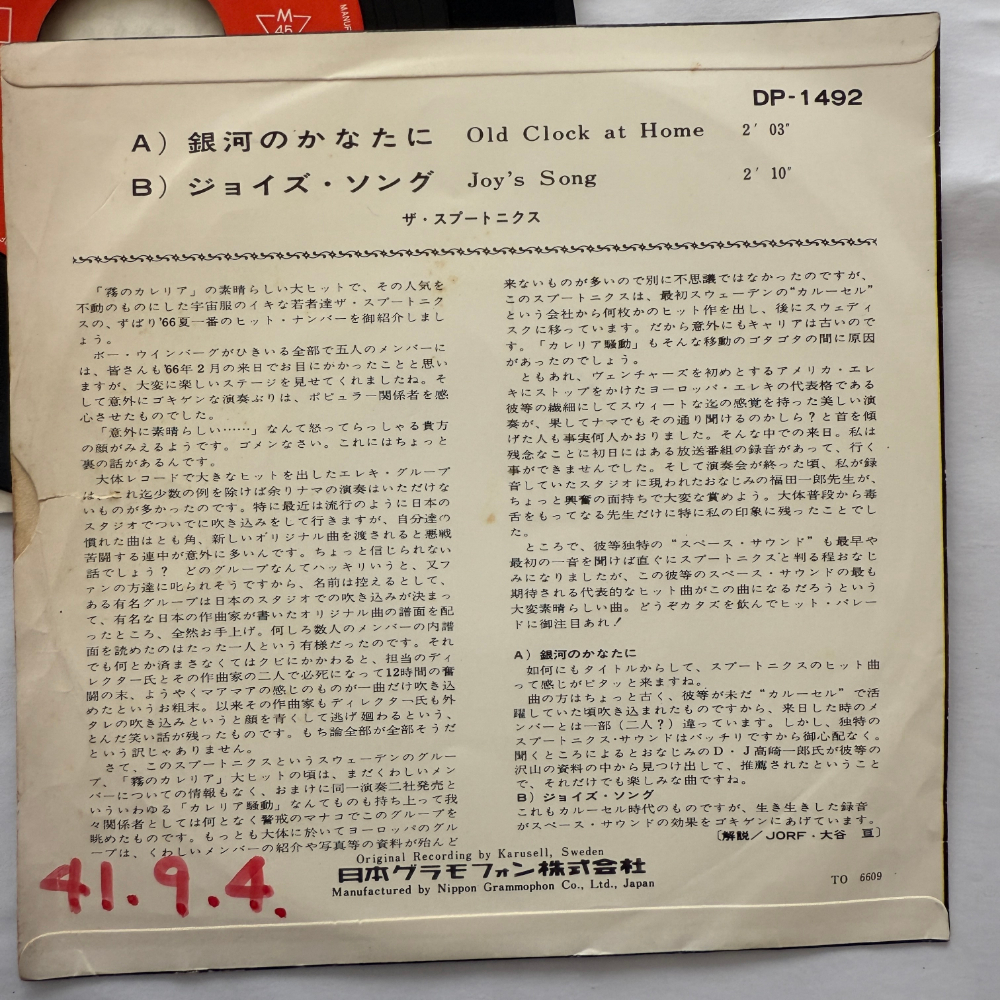 M
45
MANUF
DP-1492
A) 銀河のかなたに Old Clock at Home 2′03″
B) ジョイズ・ソング Joy's Song 2′10″
ザ・スプートニクス
「霧のカレリア」の素晴らしい大ヒットで、その人気を
不動のものにした宇宙服のイキな若者達ザ・スプートニク
スの、ずばり'66夏一番のヒット・ナンバーを御紹介しまし
ょう。
ボー・ウインバーグがひきいる全部で五人のメンバーに
は、皆さんも'66年2月の来日でお目にかかったことと思い
ますが、大変に楽しいステージを見せてくれましたね。そ
して意外にゴキゲンな演奏ぶりは、ポピュラー関係者を感
心させたものでした。
「意外に素晴らしい……」なんて怒ってらっしゃる貴方
の顔がみえるようです。ゴメンなさい。これにはちょっと
裏の話があるんです。
大体レコードで大きなヒットを出したエレキ・グループ
は、これ迄少数の例を除けば余りナマの演奏はいただけな
いものが多かったのです。特に最近は流行のように日本の
スタジオでついでに吹き込みをして行きますが、自分達の
慣れた曲はとも角、新しいオリジナル曲を渡されると悪戦
苦闘する連中が意外に多いんです。ちょっと信じられない
話でしょう? どのグループなんてハッキリいうと、又フ
ァンの方達に叱られそうですから、名前は控えるとして、
ある有名グループは日本のスタジオでの吹き込みが決まっ
て、有名な日本の作曲家が書いたオリジナル曲の譜面を配
ったところ、全然お手上げ。何しろ数人のメンバーの内譜
面を読めたのはたった一人という有様だったのです。それ
でも何とか済まさなくてはクビにかかわると、担当のディ
レクター氏とその作曲家の二人で必死になって12時間の奮
闘の末、ようやくマアマアの感じのものが一曲だけ吹き込
めたというお粗末。以来その作曲家もディレクター氏も外
タレの吹き込みというと顔を青くして逃げ廻わるという、
とんだ笑い話が残ったものです。もち論全部が全部そうだ
という訳じゃありません。
さて、このスプートニクスというスウェーデンのグルー
プ、「霧のカレリア」大ヒットの頃は、まだくわしいメン
バーについての情報もなく、おまけに同一演奏二社発売と
いういわゆる「カレリア騒動」なんてものも持ち上って我
々関係者としては何となく警戒のマナコでこのグループを
眺めたものです。もっとも大体に於いてヨーロッパのグル
ープは、くわしいメンバーの紹介や写真等の資料が殆んど
来ないものが多いので別に不思議ではなかったのですが、
このスプートニクスは、最初スウェーデンの“カルーセル”
という会社から何枚かのヒット作を出し、後にスウェディ
スクに移っています。だから意外にもキャリアは古いので
す。「カレリア騒動」もそんな移動のゴタゴタの間に原因
があったのでしょう。
ともあれ、ヴェンチャーズを初めとするアメリカ・エレ
キにストップをかけたヨーロッパ・エレキの代表格である
彼等の繊細にしてスウィートな迄の感覚を持った美しい演
奏が、果してナマでもその通り聞けるのかしら?と首を傾
げた人も事実何人かおりました。そんな中での来日。私は
残念なことに初日にはある放送番組の録音があって、行く
事ができませんでした。そして演奏会が終った頃、私が録
音していたスタジオに現われたおなじみの福田一郎先生が、
ちょっと興奮の面持ちで大変な賞めよう。大体普段から毒
舌をもってなる先生だけに特に私の印象に残ったことでし
た。
ところで、彼等独特の“スペース・サウンド”も最早や
最初の一音を聞けば直ぐにスプートニクスと判る程おなじ
みになりましたが、この彼等のスペース・サウンドの最も
期待される代表的なヒット曲がこの曲になるだろうという
大変素晴らしい曲。どうぞカタズを飲んでヒット・パレー
ドに御注目あれ!
A) 銀河のかなたに
如何にもタイトルからして、スプートニクスのヒット曲
って感じがピタッと来ますね。
曲の方はちょっと古く、彼等が未だ“カルーセル”で活
躍していた頃吹き込まれたものですから、来日した時のメ
ンバーとは一部(二人?)違っています。しかし、独特の
スプートニクス・サウンドはバッチリですから御心配なく。
聞くところによるとおなじみのD・J高崎一郎氏が彼等の
沢山の資料の中から見つけ出して、推薦されたということ
で、それだけでも楽しみな曲ですね。
B) ジョイズ・ソング
これもカルーセル時代のものですが、生き生きした録音
がスペース・サウンドの効果をゴキゲンにあげています。
〔解説/JORF・大谷 亘〕
Original Recording by Karusell, Sweden
日本グラモフォン株式会社
Manufactured by Nippon Grammophon Co., Ltd., Japan
TO 6609
41.9.4.